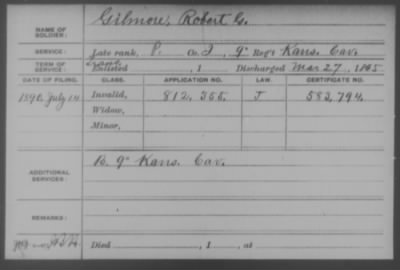 NAME OF SOLDIER: Gilmore, Robert G.
SERVICE: Late rank, P. Co. I, 9" Reg't Kans. Cav.
TERM OF SERVICE: Enlisted , 1 Discharged Mar 27, 1865
DATE OF FILING. CLASS. APPLICATION NO. LAW. CERTIFICATE NO.
1890, July 14 Invalid, 812,355. J 583,794.
Widow,
Minor,
ADDITIONAL SERVICES: B. 9" Kans. Cav.
REMARKS:
Died , 1 , at